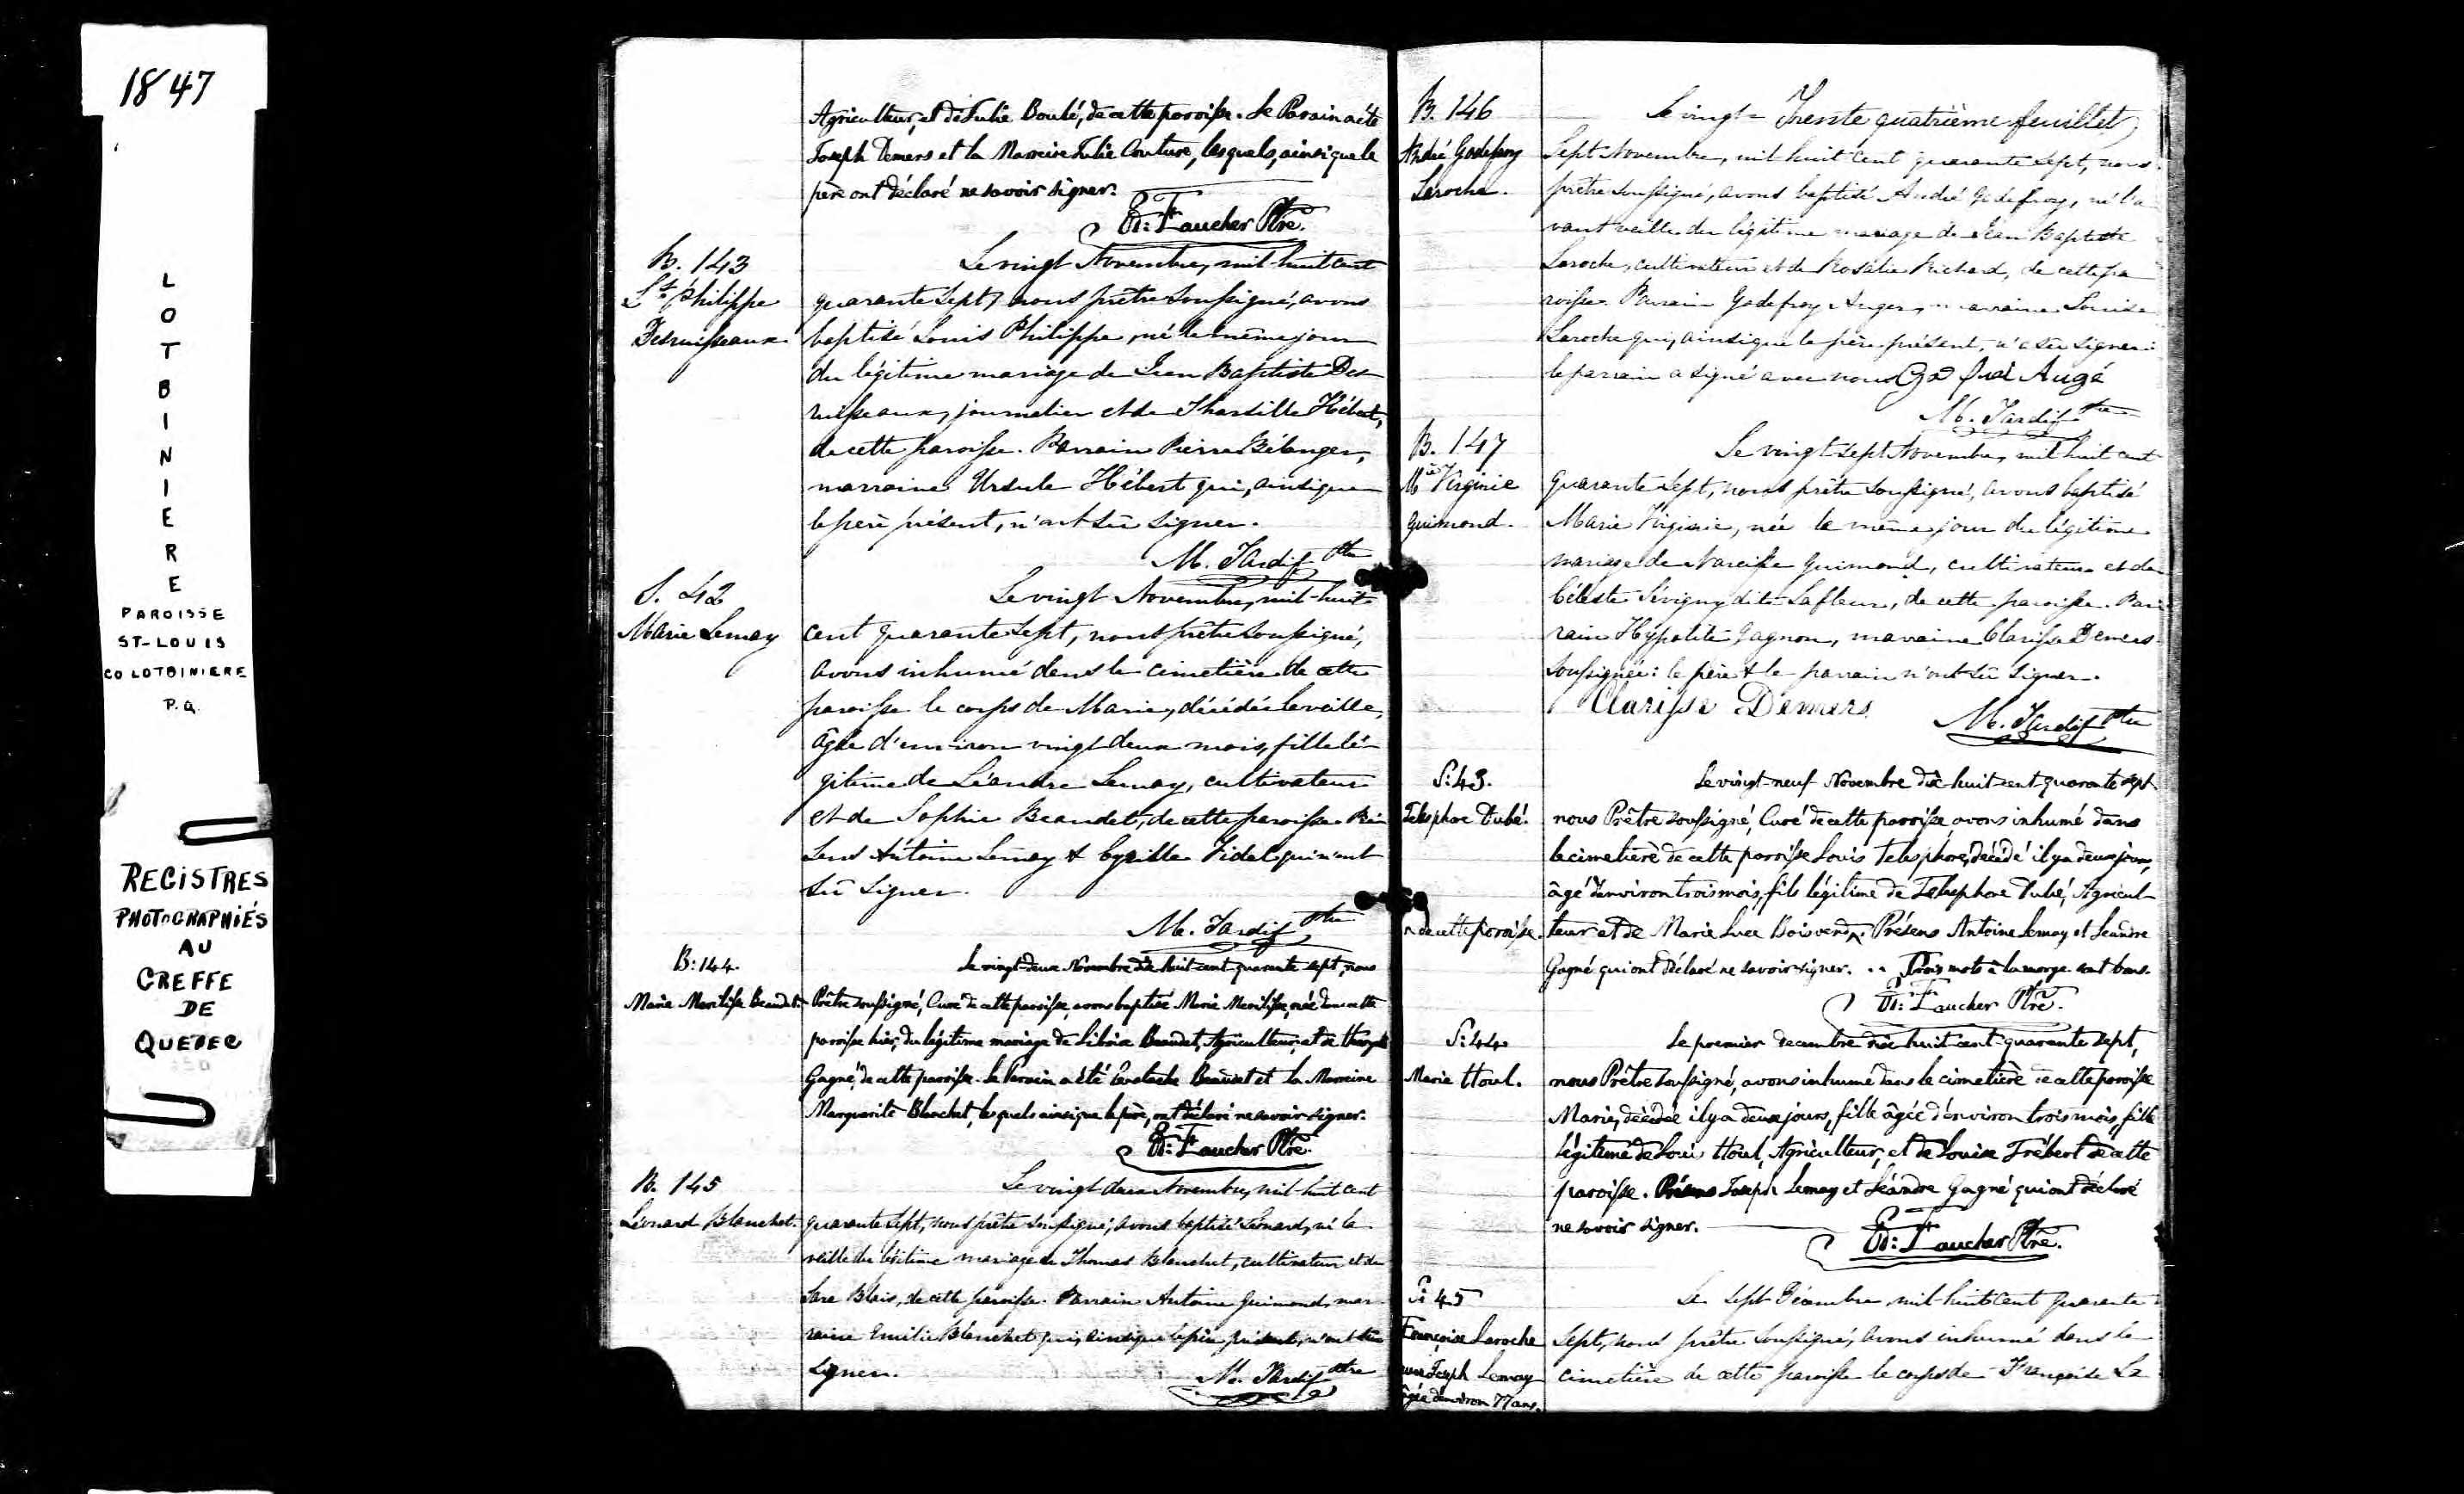 1847
LOTBINIERE
PAROISSE
ST-LOUIS
CO LOTBINIERE
P.Q.
REGISTRES
PHOTOGRAPHIÉS
AU
GREFFE
DE
QUEBEC
Agriculteur, et de Julie Boulé, de cette paroisse. Le Parain a été
Joseph Demers et la Maraine Julie Couture, lesquels, ainsi que le
père ont déclaré ne savoir signer.
Ed: Faucher Ptre.
B. 143
Ls Philippe
Desruisseaux
Le vingt Novembre, mil-huit cent
quarante sept, nous prêtre soussigné, avons
baptisé Louis Philippe, né le même jour
du légitime mariage de Jean Baptiste Des
ruisseaux, journalier et de Tharsille Hébert,
de cette paroisse. Parrain Pierre Bélanger,
marraine Ursule Hébert qui, ainsi que
le père présent, n'ont sû signer.
M. Tardif Ptre
S. 42
Marie Lemay
Le vingt Novembre, mil-huit
cent quarante sept, nous prêtre soussigné,
avons inhumé dans le cimetière de cette
paroisse le corps de Marie, décédée la veille,
âgée d'environ vingt deux mois, fille lé
gitime de Léandre Lemay, cultivateur
et de Sophie Beaudet, de cette paroisse. Pré
sens Antoine Lemay & Cyrille Fidel qui n'ont
sû signer.
M. Tardif Ptre
B: 144.
Marie Merilisse Beaudet.
Le vingt-deux Novembre dix-huit-cent-quarante-sept, nous
Prêtre soussigné, Curé de cette paroisse, avons baptisé Marie Merilisse, née dans cette
paroisse hier, du légitime mariage de Liboire Beaudet, Agriculteur, et de
Gagné, de cette paroisse. Le Parain a été Eustache Beaudet et la Maraine
Marguerite Blanchet, lesquels ainsi que le père, ont déclaré ne savoir signer.
Ed: Faucher Ptre.
B. 145
Léonard Blanchet.
Le vingt deux Novembre, mil-huit cent
quarante sept, nous prêtre soussigné, avons baptisé Léonard, né la
veille du légitime mariage de Thomas Blanchet, cultivateur et de
Sara Blais, de cette paroisse. Parrain Antoine Guimond, mar
raine Emilie Blanchet qui, ainsi que le père présent, n'ont sû
signer.
M. Tardif Ptre
B. 146
André Godefroy
Laroche.
Trente quatrième feuillet
Le vingt-
Sept Novembre, mil huit cent quarante sept, nous
prêtre soussigné, avons baptisé André Godefroy, né l'a
vant veille du légitime mariage de Jean Baptiste
Laroche, cultivateur et de Rosalie Richard, de cette pa
roisse. Parrain Godefroy Auger, marraine Louise
Laroche qui, ainsi que le père présent, n'a sû signer:
le parrain a signé avec nous Augé
M. Tardif Ptre
B. 147
Mie Virginie
Guimond.
Le vingt sept Novembre, mil huit cent
quarante sept, nous prêtre soussigné, avons baptisé
Marie Virginie, née le même jour du légitime
mariage de Narcisse Guimond, cultivateur et de
Céleste Sévigny dite Lafleur, de cette paroisse. Par
rain Hypolite Gagnon, marraine Clarisse Demers
soussignée: le père & le parrain n'ont sû signer.
Clarisse Demers
M. Tardif Ptre
S: 43.
Telesphore Dubé.
Le vingt-neuf Novembre dix-huit-cent-quarante-sept
nous Prêtre soussigné, Curé de cette paroisse avons inhumé dans
le cimetière de cette paroisse Louis Telesphore, décédé il y a deux jours,
âgé d'environ trois mois, fils légitime de Telesphore Dubé, Agricul-
teur et de Marie Luce Boisverd. Présens Antoine Lemay et Leandre
de cette paroisse.
Gagné qui ont déclaré ne savoir signer. .. Trois mots à la marge sont bons.
Ed: Faucher Ptre.
S: 44.
Marie Houl.
Le premier decembre dix-huit-cent-quarante-sept,
nous Prêtre soussigné, avons inhumé dans le cimetière de cette paroisse
Marie, décédée il y a deux jours, fille âgée d'environ trois mois, fille
légitime de Loui Houl, Agriculteur, et de Louise Trébert de cette
paroisse. Présens Joseph Lemay et Léandre Gagné qui ont déclaré
ne savoir signer.
Ed: Faucher Ptre.
S: 45
Françoise Laroche
Joseph Lemay
âgée d'environ 77 ans.
Le sept Décembre mil-huit cent quarante
sept, nous prêtre soussigné, avons inhumé dans le
cimetière de cette paroisse le corps de Françoise La